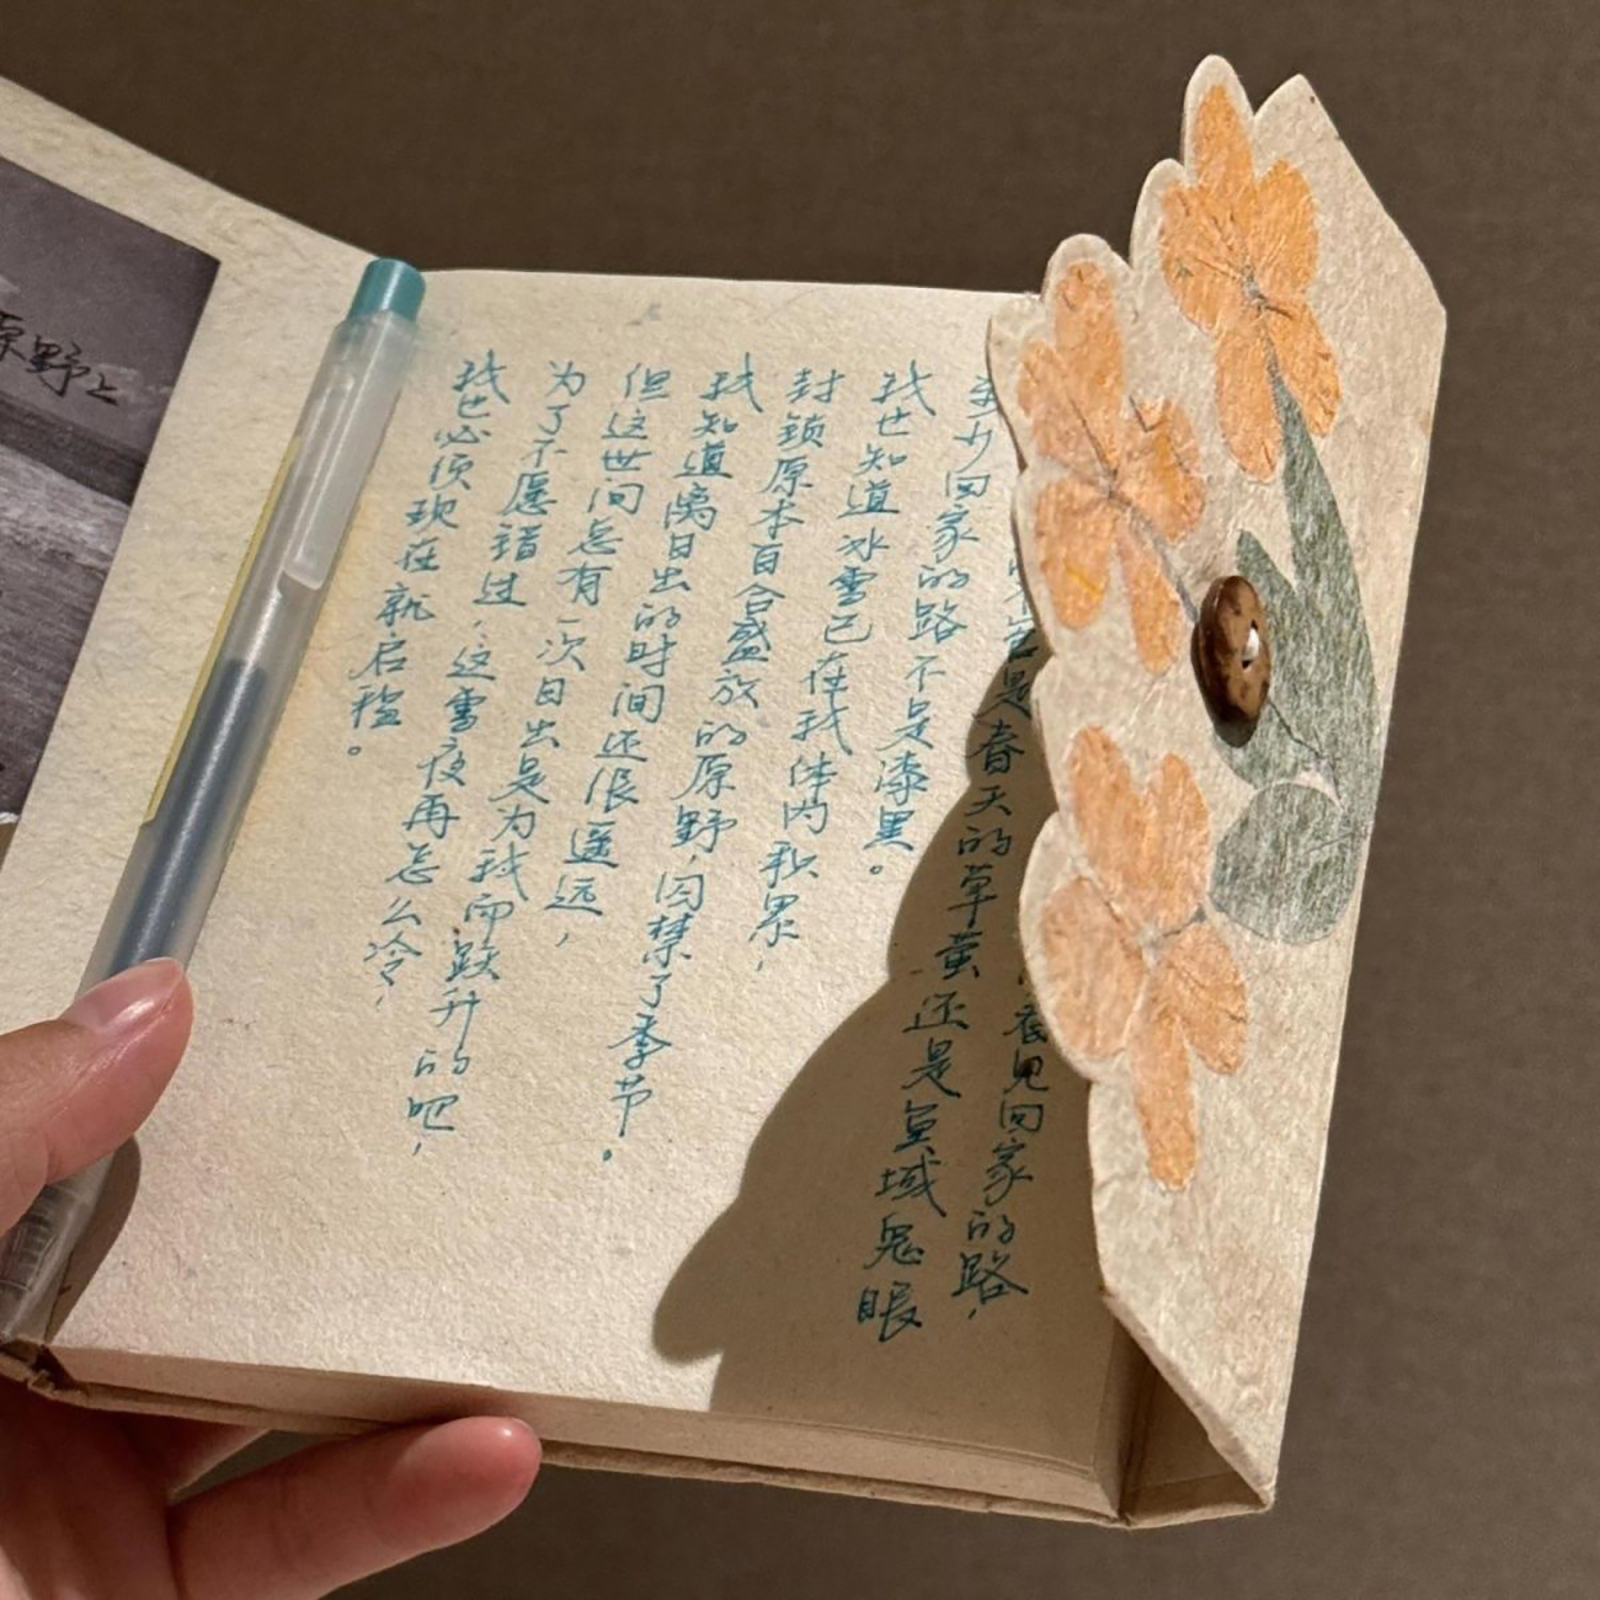 原野上
看见回家的路，
是春天的草萤还是域鬼眼
至少回家的路不是漆黑。
我也知道冰雪已在我体内积累，
封锁原本百合盛放的原野，囚禁了季节。
我知道离日出的时间还很遥远，
但这世间总有一次日出是为我而跃升的吧，
为了不愿错过，这雪夜再怎么冷，
我也必须现在就启程。